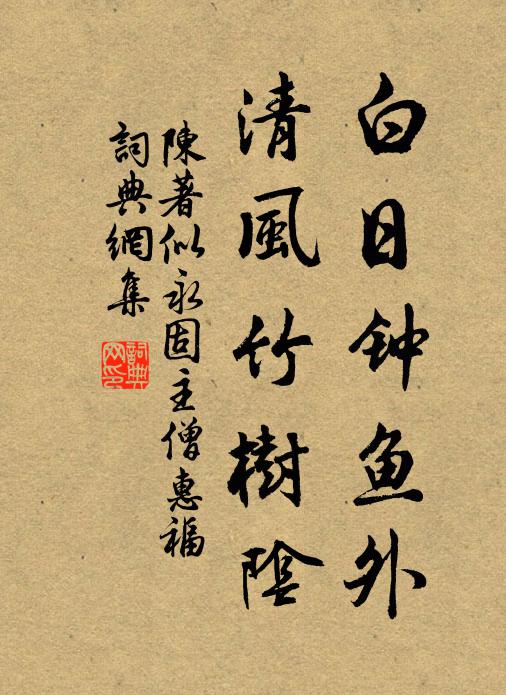 白日钟魚外
清風竹樹陰
陳著似永固主僧惠福
詞典網集
詞典網印